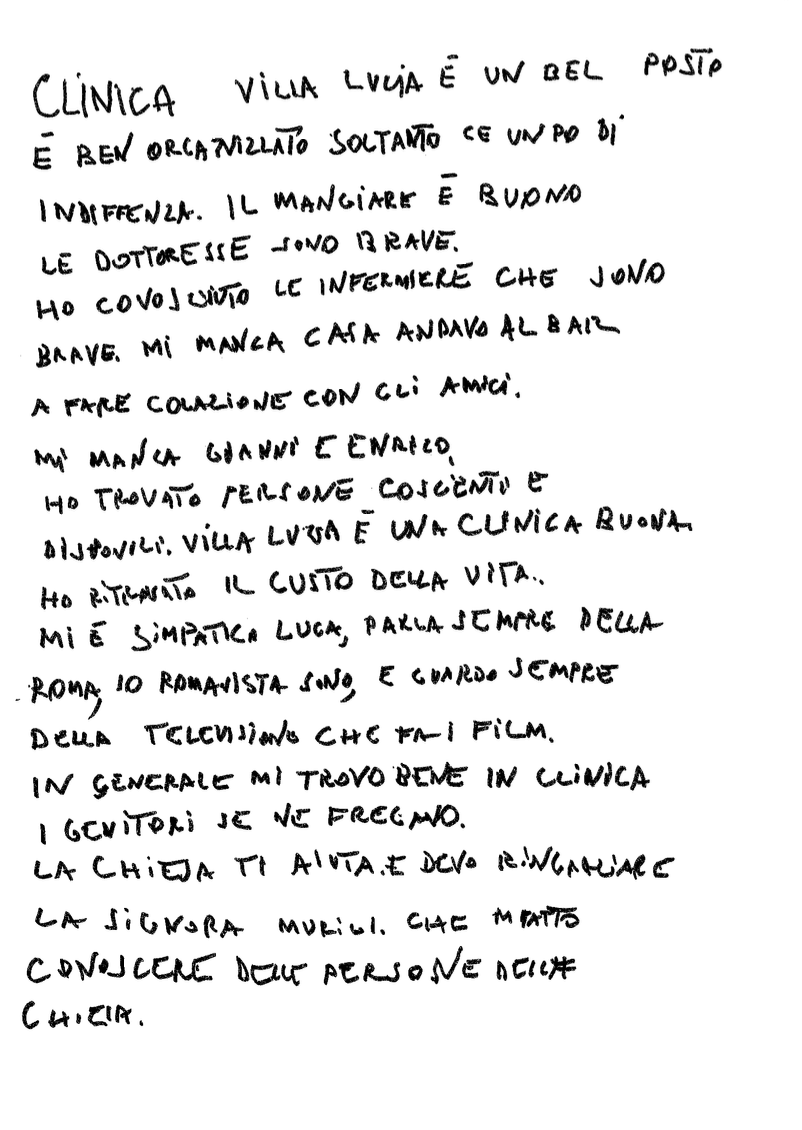 CLINICA VILLA LUCIA È UN BEL POSTO
È BEN ORGANIZZATO SOLTANTO CE UN PO DI
INDIFFENZA. IL MANGIARE È BUONO
LE DOTTORESSE SONO BRAVE.
HO CONOSCIUTO LE INFERMIERE CHE SONO
BRAVE. MI MANCA CASA ANDAVO AL BAR
A FARE COLAZIONE CON GLI AMICI.
MI MANCA GIANNI E ENRICO,
HO TROVATO PERSONE COSCENTI E
DISPONILI. VILLA LUCIA È UNA CLINICA BUONA.
HO RITROVATO IL GUSTO DELLA VITA..
MI È SIMPATICO LUCA, PARLA SEMPRE DELLA
ROMA, IO ROMANISTA SONO, E GUARDO SEMPRE
DELLA TELEVISIONO CHE FA I FILM.
IN GENERALE MI TROVO BENE IN CLINICA
I GENITORI SE NE FREGANO.
LA CHIESA TI AIUTA. E DEVO RINGRAZIARE
LA SIGNORA CHE M FATTO
CONOSCERE DELLE PERSONE DELLA
CHIESA.